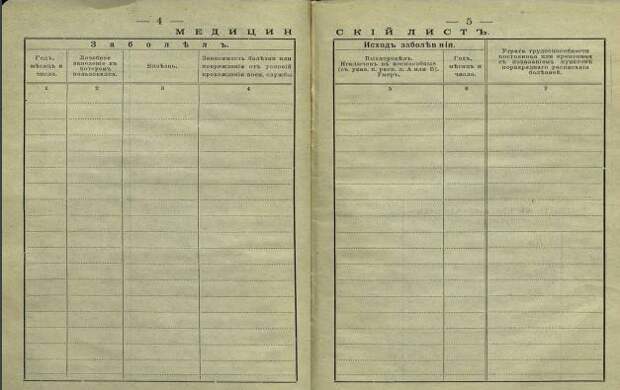 — 4 —
МЕДИЦИН
Заболѣлъ.
Годъ,
мѣсяцъ и
число.
Лечебное
заведеніе въ
которомъ
пользовался.
Болѣзнь.
Зависимость болѣзни или
поврежденія отъ условій
прохожденія воен. службы
1 2 3 4
— 5 —
СКІЙ ЛИСТЪ.
Исходъ заболѣванія.
Выздоровѣлъ.
Умеръ.
Годъ,
мѣсяцъ и
число.
Утрата трудоспособности
постоянная или временная
съ показаніемъ пунктовъ
росписанія
болѣзней.
5 6 7